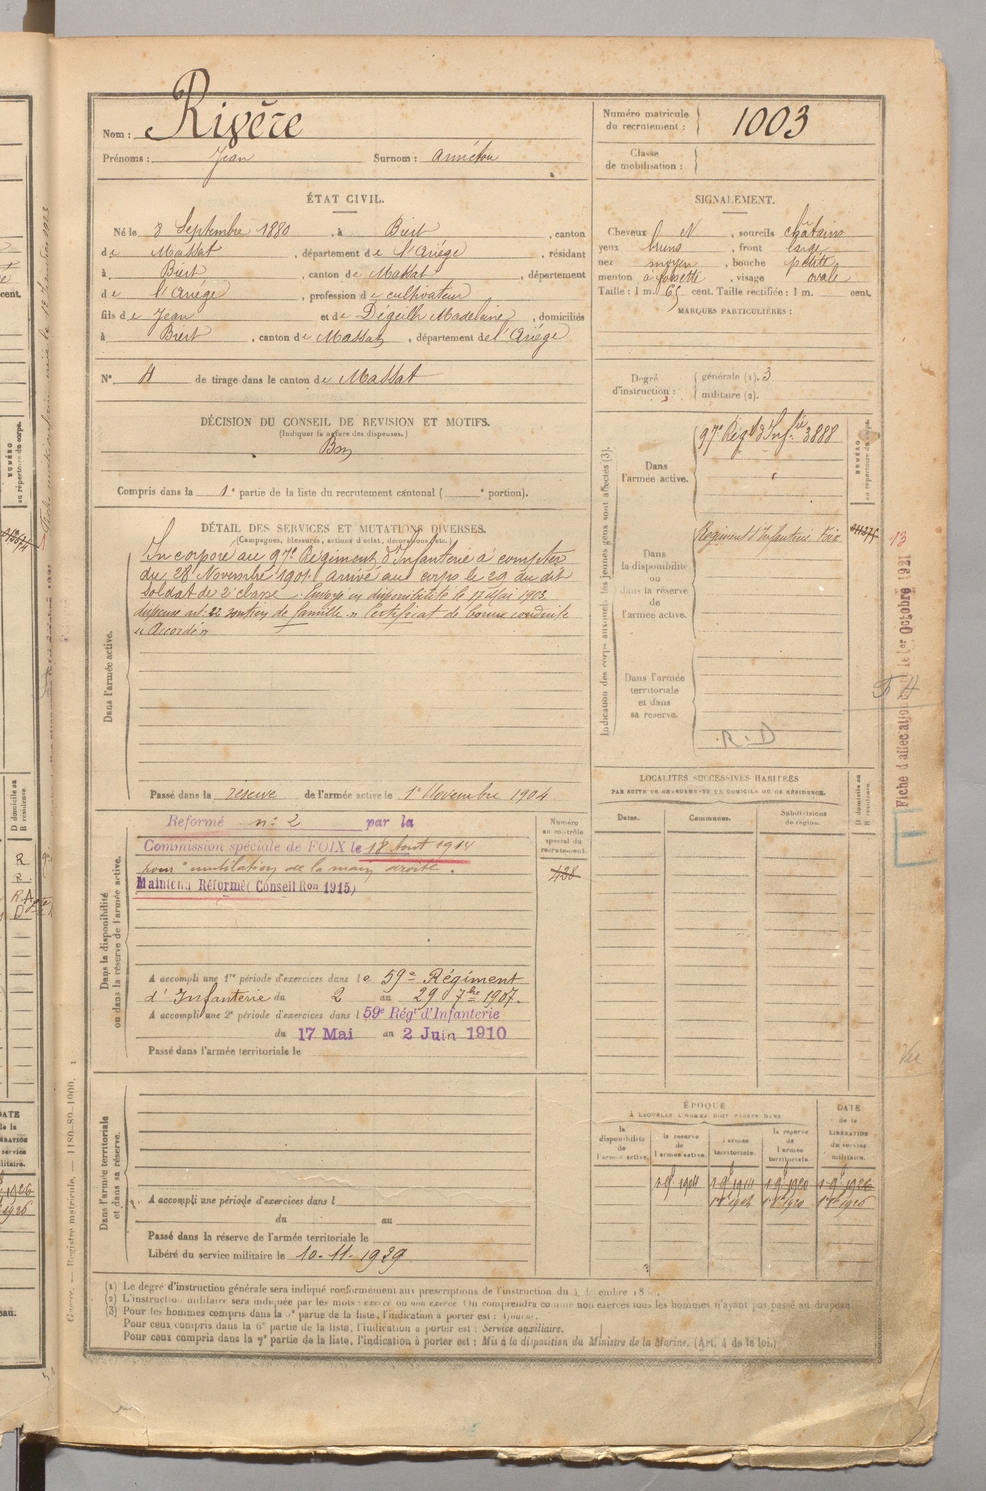 Nom : Rivère
Prénoms : Jean Surnom :
Numéro matricule du recrutement : 1003
Classe de mobilisation :
ÉTAT CIVIL.
Né le 8 Septembre 1880, à Biert, canton
de Massat, département de l'Ariège, résidant
à Biert, canton de Massat, département
de l'Ariège, profession de cultivateur
fils de Jean et de Degeilh Madeleine, domiciliés
à Biert, canton de Massat, département de l'Ariège
N° de tirage dans le canton de Massat
SIGNALEMENT.
Cheveux N, sourcils châtains
yeux bruns, front large
nez moyen, bouche petite
menton à fossette, visage ovale
Taille : 1 m. 65 cent. Taille rectifiée : 1 m. cent.
MARQUES PARTICULIÈRES :
Degré d'instruction : générale (1). 3
militaire (2).
DÉCISION DU CONSEIL DE REVISION ET MOTIFS.
(Indiquer la nature des dispenses.)
Bon
Compris dans la 1e partie de la liste du recrutement cantonal ( e portion).
DÉTAIL DES SERVICES ET MUTATIONS DIVERSES.
(Campagnes, blessures, actions d'éclat, décorations, etc.)
Dans l'armée active.
Incorporé au 97e Régiment d'Infanterie à compter
du 28 Novembre 1901. arrivé au corps le 29 du dit
Soldat de 2e classe. Envoyé en disponibilité le 17 Mai 1903.
dispensé art. 22 soutien de famille. Certificat de bonne conduite
"Accordé"
Passé dans la réserve de l'armée active le 1er Novembre 1904
Indication des corps auxquels les jeunes gens sont affectés (3).
Dans l'armée active.
97e Régt d'Infrie 3888
Dans la disponibilité ou dans la réserve de l'armée active.
Régiment d'Infanterie Foix
Dans l'armée territoriale et dans sa réserve.
R.D
NUMÉRO au répertoire du corps.
Fiche d'affectation le 1er Octobre 1921
Dans la disponibilité ou dans la réserve de l'armée active.
Réformé n° 2 par la
Commission spéciale de FOIX le 18 Aout 1914
pour mutilation de la main droite.
Maintenu Réformé (Conseil Ron 1915)
Numéro au contrôle spécial du recrutement.
438
A accompli une 1re période d'exercices dans le 59e Régiment
d'Infanterie du 2 au 29 7bre 1907.
A accompli une 2e période d'exercices dans l 59e Régt d'Infanterie
du 17 Mai au 2 Juin 1910
Passé dans l'armée territoriale le
LOCALITÉS SUCCESSIVES HABITÉES
PAR SUITE DE CHANGEMENT DE DOMICILE OU DE RÉSIDENCE.
Dates. Communes. Subdivisions de région.
D domicile ou R résidence.
Dans l'armée territoriale et dans sa réserve.
A accompli une période d'exercices dans l
du au
Passé dans la réserve de l'armée territoriale le
Libéré du service militaire le 10-11-1929
ÉPOQUE
À LAQUELLE L'HOMME DOIT PASSER DANS
la disponibilité de l'armée active.
la réserve de l'armée active.
l'armée territoriale.
la réserve de l'armée territoriale.
DATE de la LIBÉRATION du service militaire.
1904 1914 1920 1926
(1) Le degré d'instruction générale sera indiqué conformément aux prescriptions de l'instruction du
(2) L'instruction militaire sera indiquée par les mots : exercé ou non exercé. On comprendra comme non exercés tous les hommes n'ayant pas passé au drapeau.
(3) Pour les hommes compris dans la partie de la liste, l'indication à porter est : Ajourné.
Pour ceux compris dans la 6e partie de la liste, l'indication à porter est : Service auxiliaire.
Pour ceux compris dans la 7e partie de la liste, l'indication à porter est : Mis à la disposition du Ministre de la Marine. (Art. 4 de la loi.)